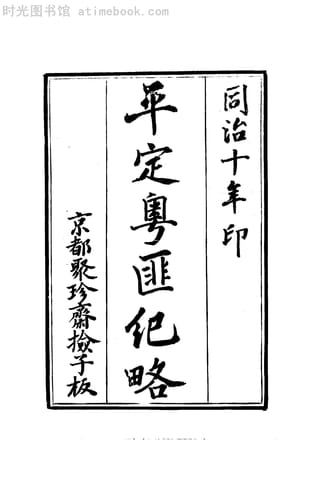 时光图书馆 atimebook.com
同治十年印
平定粵匪紀略
京都聚珍齋撿子板